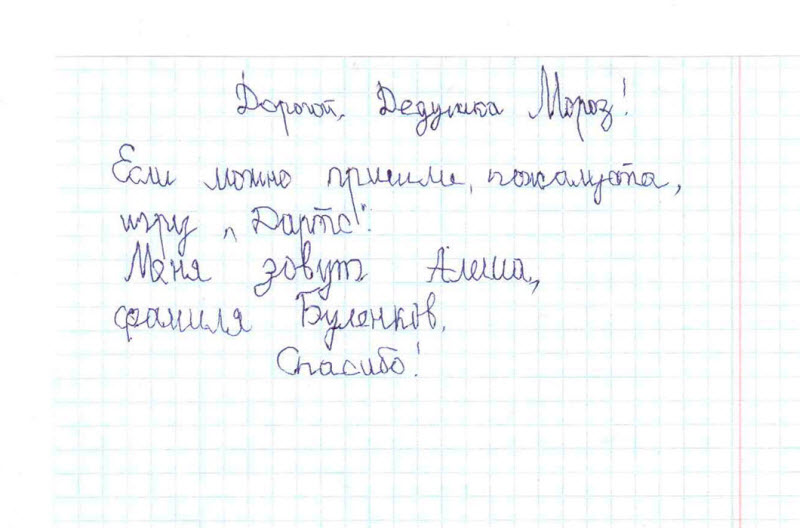 Дорогой, Дедушка Мороз!
Если можно пришли, пожалуста,
игру "Дартс".
Меня зовут Алеша,
фамиля Буленков.
Спасибо!